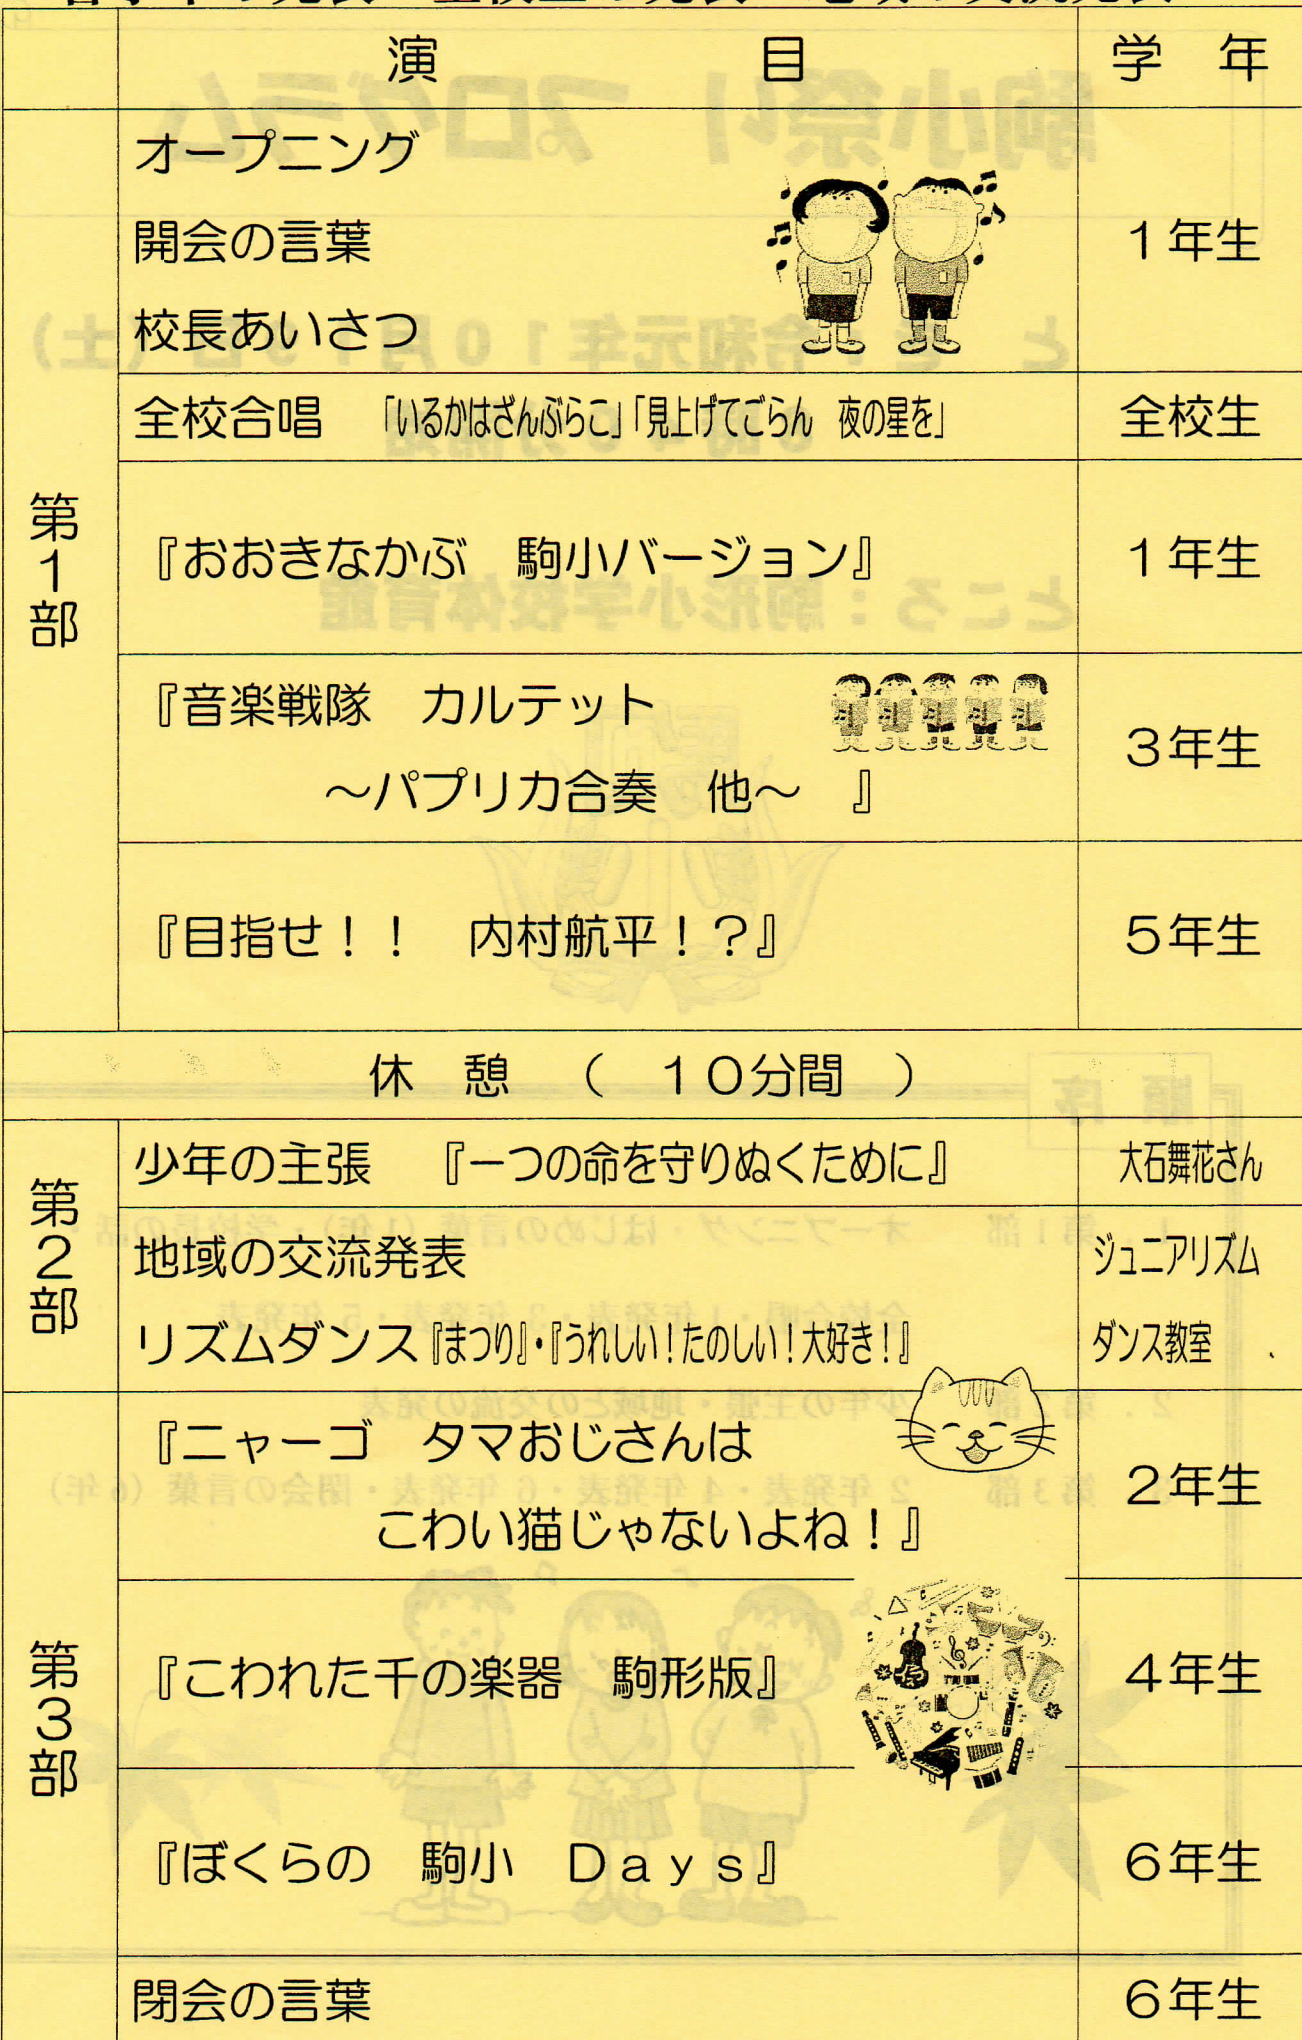 演　目　学　年
第1部
オープニング
開会の言葉
校長あいさつ
1年生
全校合唱　「いるかはざんぶらこ」「見上げてごらん　夜の星を」　全校生
『おおきなかぶ　駒小バージョン』　1年生
『音楽戦隊　カルテット
～パプリカ合奏　他～　』
3年生
『目指せ！！　内村航平！？』　5年生
休　憩　（　10分間　）
第2部
少年の主張　『一つの命を守りぬくために』　大石舞花さん
地域の交流発表　ジュニアリズム
リズムダンス『まつり』・『うれしい！たのしい！大好き！』　ダンス教室
第3部
『ニャーゴ　タマおじさんは
こわい猫じゃないよね！』
2年生
『こわれた千の楽器　駒形版』　4年生
『ぼくらの　駒小　Days』　6年生
閉会の言葉　6年生